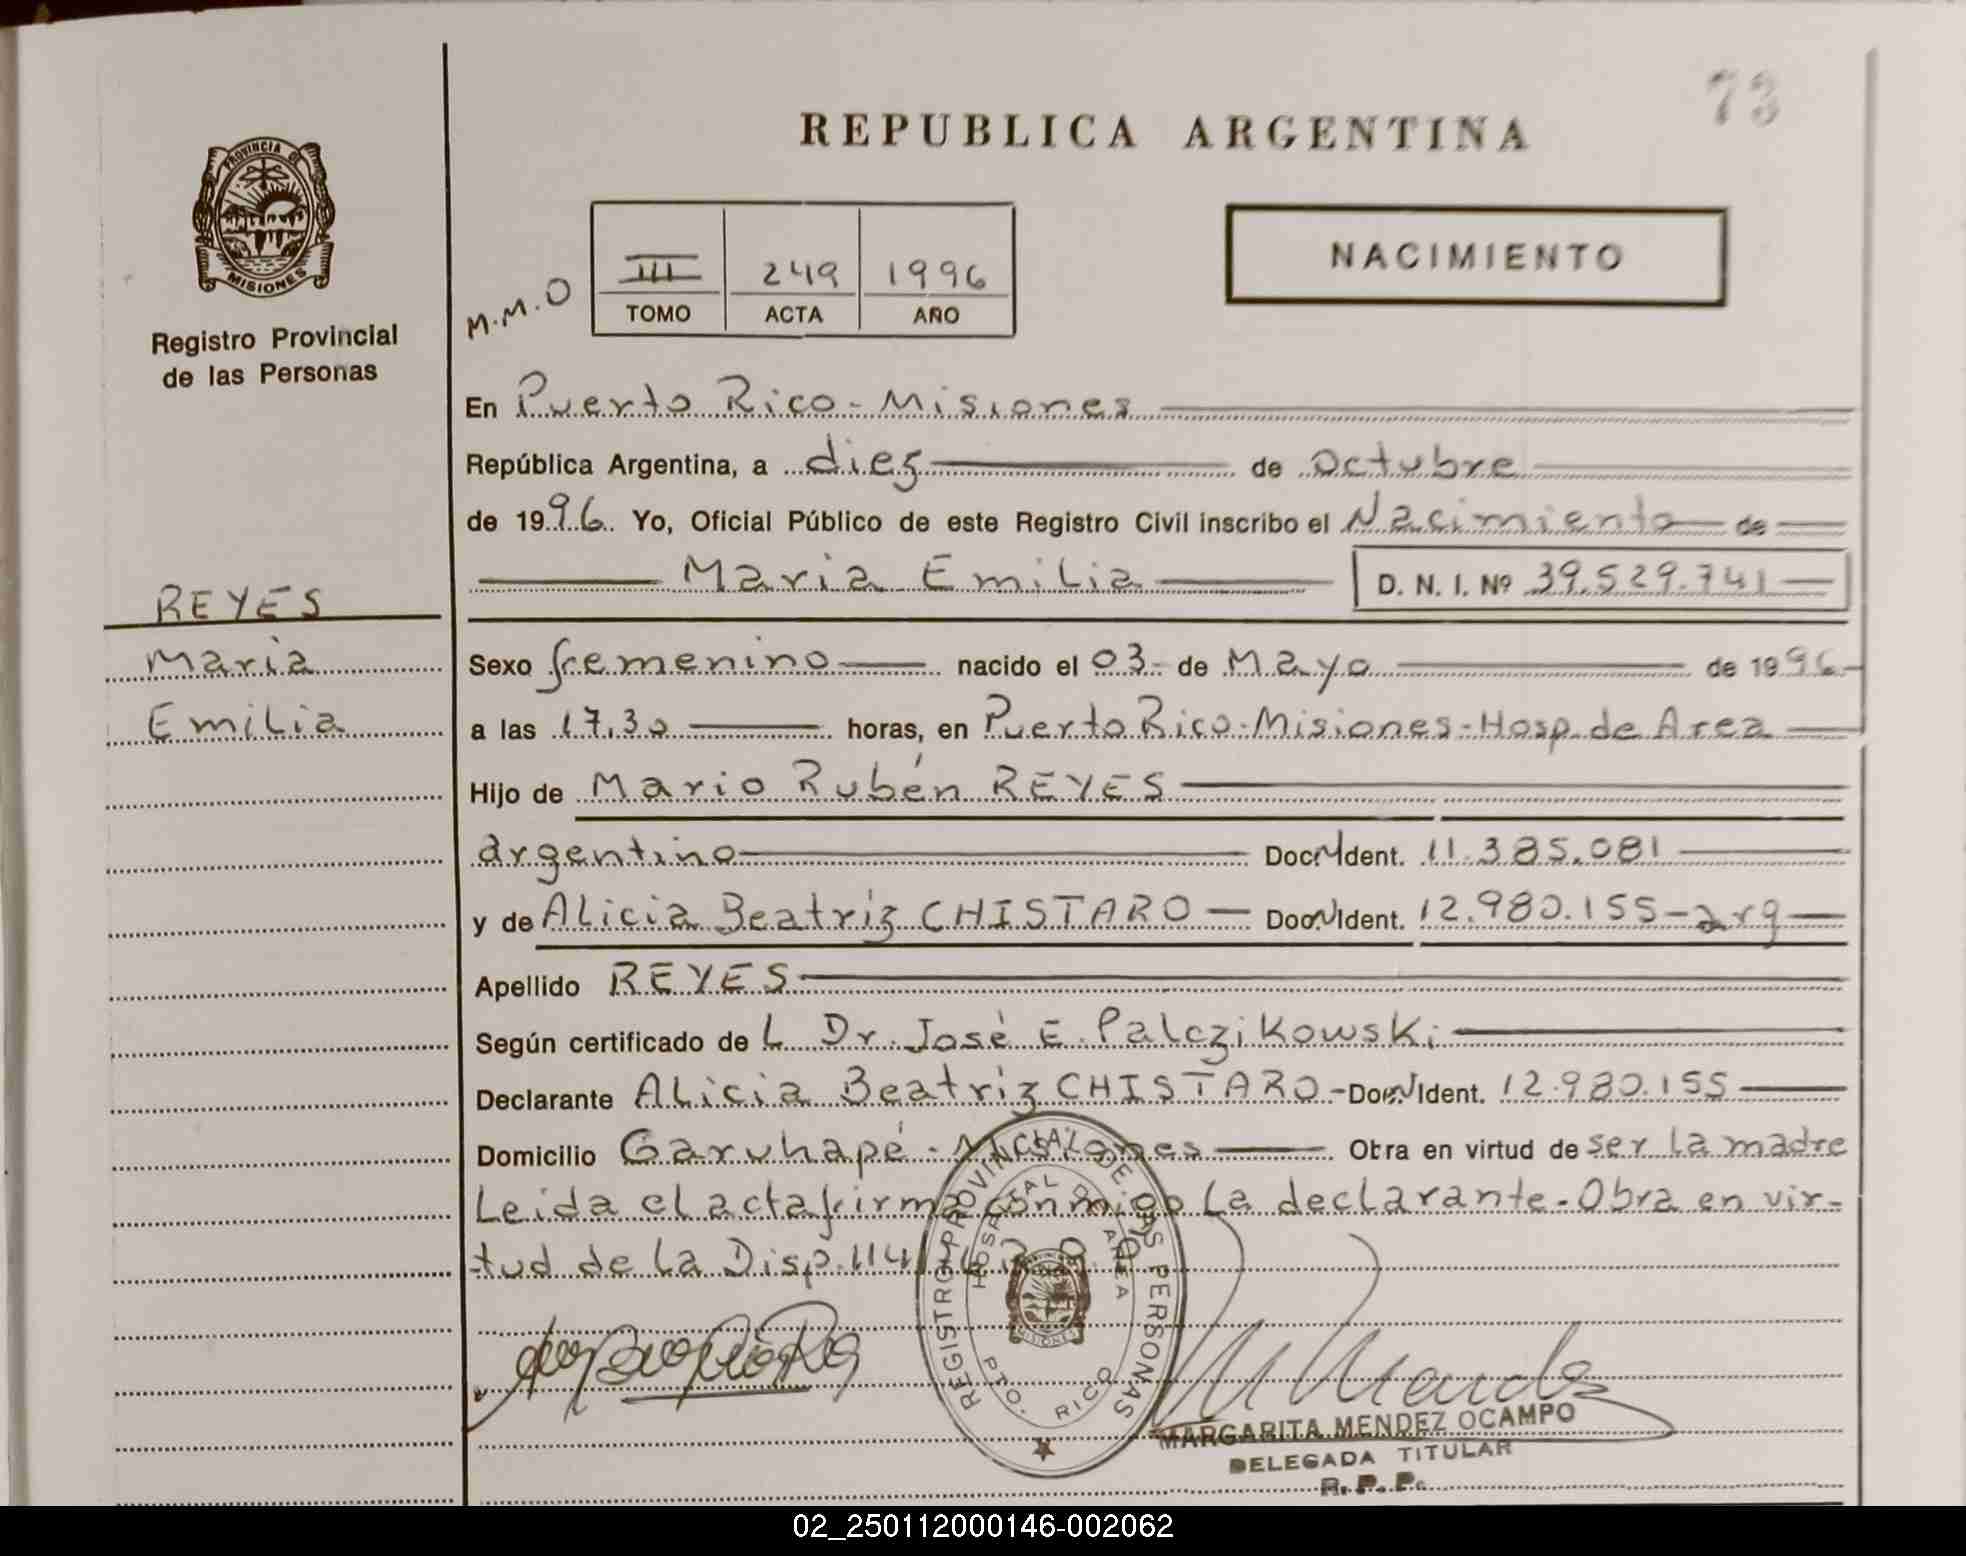 73
REPUBLICA ARGENTINA
PROVINCIA DE MISIONES
Registro Provincial
de las Personas
M.M.O
III 249 1996
TOMO ACTA AÑO
NACIMIENTO
En Puerto Rico - Misiones
República Argentina, a diez de Octubre
de 1996. Yo, Oficial Público de este Registro Civil inscribo el Nacimiento de
Maria Emilia D. N. I. Nº 39.529.741
REYES
Maria
Emilia
Sexo femenino nacido el 03 de Mayo de 1996
a las 17,30 horas, en Puerto Rico-Misiones-Hosp. de Area
Hijo de Mario Rubén REYES
argentino Doc. N Ident. 11.385.081
y de Alicia Beatríz CHISTARO Doc. N Ident. 12.980.155-arg
Apellido REYES
Según certificado de L Dr. José E. Palczikowski
Declarante Alicia Beatríz CHISTARO - Doc. N Ident. 12.980.155
Domicilio Garuhapé - Misiones Obra en virtud de ser la madre
Leida el acta firma conmigo la declarante - Obra en vir-
tud de la Disp. 114
REGISTRO PROVINCIAL DE LAS PERSONAS
HOSPITAL DE AREA
PTO. RICO
MARGARITA MENDEZ OCAMPO
DELEGADA TITULAR
R. P. P.
02_250112000146-002062